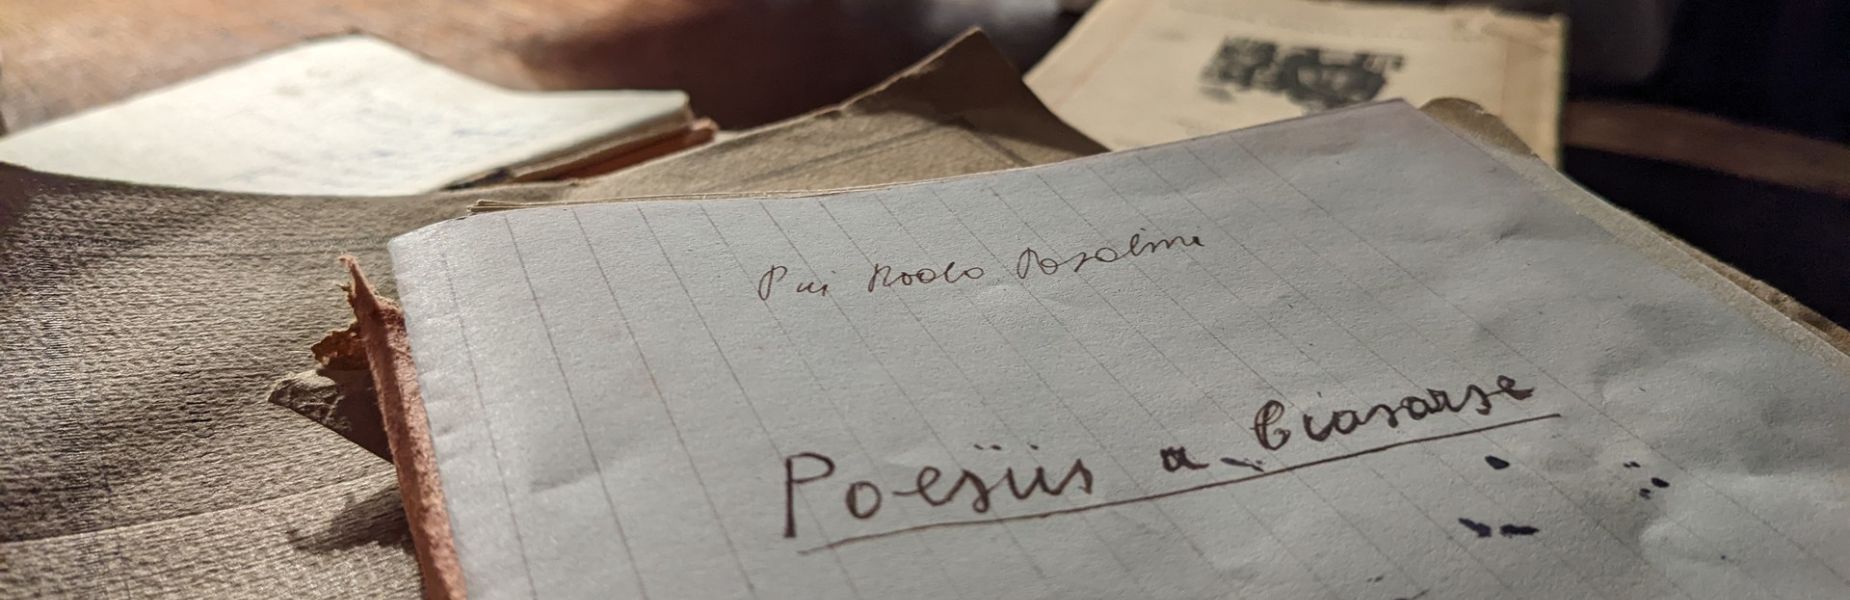 Pier Paolo Pasolini
Poesiis a Ciasarse